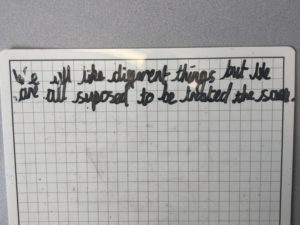 We all like different things but We
are all suposed to be treated the same.